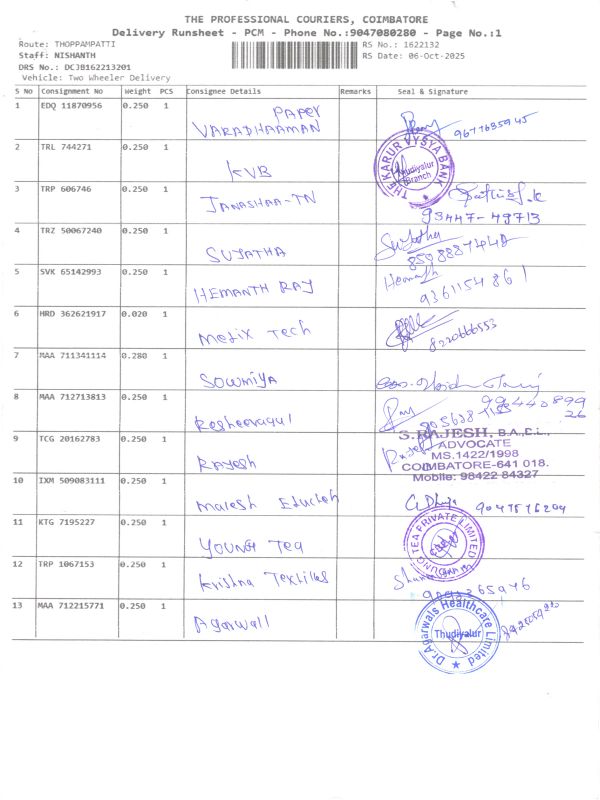 THE PROFESSIONAL COURIERS, COIMBATORE
Delivery Runsheet - PCM - Phone No.:9047080280 - Page No.:1
Route: THOPPAMPATTI
RS No.: 1622132
Staff: NISHANTH
RS Date: 06-Oct-2025
DRS No.: DCJB162213201
Vehicle: Two Wheeler Delivery
S No Consignment No Weight PCS Consignee Details Remarks Seal & Signature
1 EDQ 11870956 0.250 1 PAPER
VARADHAAMAN
2 TRL 744271 0.250 1
KVB
THE KARUR VYSYA BANK
Thudiyalur
Branch
3 TRP 606746 0.250 1
JANASHAA-TN
93447-49713
4 TRZ 50067240 0.250 1
SUJATHA Sujatha
5 SVK 65142993 0.250 1
HEMANTH RAJ Hemanth
9361154861
6 HRD 362621917 0.020 1
Metix Tech 8220666553
7 MAA 711341114 0.280 1
SOWMIYA
8 MAA 712713813 0.250 1
9 TCG 20162783 0.250 1
Rajesh
S.RAJESH, B.A.,B.L.,
ADVOCATE
MS.1422/1998
COIMBATORE-641 018.
Mobile: 98422 84327
10 IXM 509083111 0.250 1
11 KTG 7195227 0.250 1
YOUNG Tea
YOUNG TEA PRIVATE LIMITED
12 TRP 1067153 0.250 1
Krishna Textiles
13 MAA 712215771 0.250 1
Agarwall
Dr.Agarwals Healthcare Limited
Thudiyalur